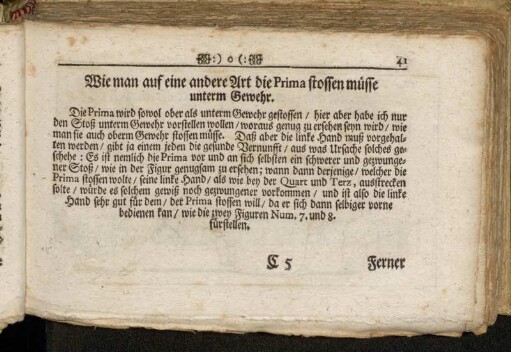 :) o (: 41
Wie man auf eine andere Art die Prima stossen müsse
unterm Gewehr.
Die Prima wird sowol ober als unterm Gewehr gestossen / hier aber habe ich nur
den Stoß unterm Gewehr vorstellen wollen / woraus genug zu ersehen seyn wird / wie
man sie auch oberm Gewehr stossen müsse. Daß aber die linke Hand muß vorgehal-
ten werden / gibt ja einem jeden die gesunde Vernunfft / aus was Ursache solches ge-
schehe: Es ist nemlich die Prima vor und an sich selbsten ein schwerer und gezwunge-
ner Stoß / wie in der Figur genugsam zu ersehen; wann dann derjenige / welcher die
Prima stossen wolte / seine linke Hand / als wie bey der Quart und Terz, ausstrecken
solte / würde es solchem gewiß noch gezwungener vorkommen / und ist also die linke
Hand sehr gut für dem / der Prima stossen will / da er sich dann selbiger vorne
bedienen kan / wie die zwey Figuren Num. 7. und 8.
fürstellen.
C 5 Ferner